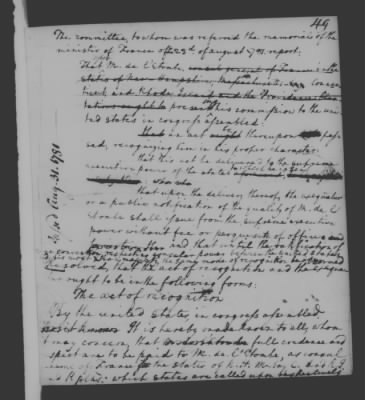 49
The committee, to whom was referred the memorials of the
minister of France of the 23d of august 1781. report:
That, M. de L'Etombe, consul general of France in the
states of New Hampshire, Massachusetts, Connec-
ticut and Rhode Island and the Providence Plan-
tations ought to present his commission to the uni-
ted states in congress assembled:
that an act thereupon pas-
sed, recognizing him in his proper character:
that this act be delivered to the supreme
executive power of the states
that upon the delivery thereof, the exequatur
or a public notification of the quality of M. de L'
Etombe shall issue from the supreme executive
power without fee or perquisite of office and
and that until the ratification of
a convention respecting consular power between the united states
the same mode of recognition be observed
Resolved, that the act of recognition and the exequa-
tur ought to be in the following forms:
The act of recognition
By the united states in congress assembled
It is hereby made known to all, whom
it may concern, that full credence and
respect are to be paid to M. de L'Etombe, as consul
of France for the states of
which states are called upon respectively
Aug. 21. 1781